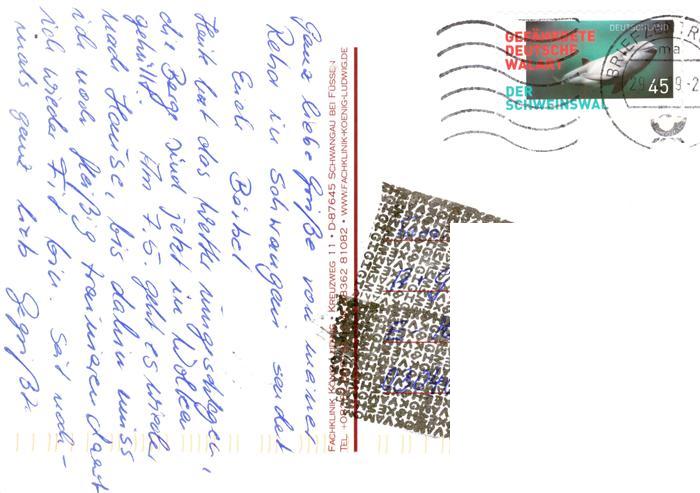 Ganz liebe Grüße von meiner
Reha in Schwangau sendet
Euch Bärbel
Heute hat das Wetter umgeschlagen,
die Berge sind jetzt in Wolken
gehüllt. Am 7.5. geht es wieder
nach Hause, bis dahin muss
ich noch fleißig trainieren damit
ich wieder fit bin. Seit noch-
mals ganz lieb gegrüßt.
FACHKLINIK
KREUZWEG 11 • D-87645 SCHWANGAU BEI FÜSSEN
TEL +08362 81082 • WWW.FACHKLINIK-KOENIG-LUDWIG.DE
DEUTSCHLAND
GEFÄHRDETE
DEUTSCHE
WALART
DER
SCHWEINSWAL
45
BRIEFZENTR
29